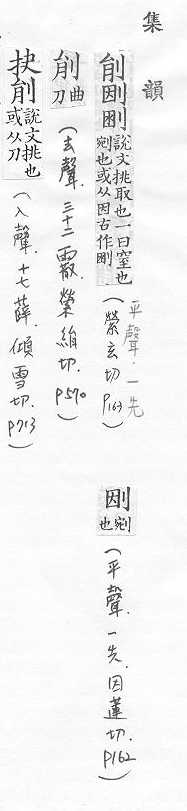 集韻
剈𠛃𠜄說文挑取也一曰窒也
剜也或从因古作剛
(縈玄切 平聲.一先 P163)
剈曲刀
(去聲.三十二霰縈絹切.P570)
抉剈說文挑也
或从刀
(入聲.十七薛.傾雪切.P713)
剜也
(平聲.一先.因蓮切.P162)